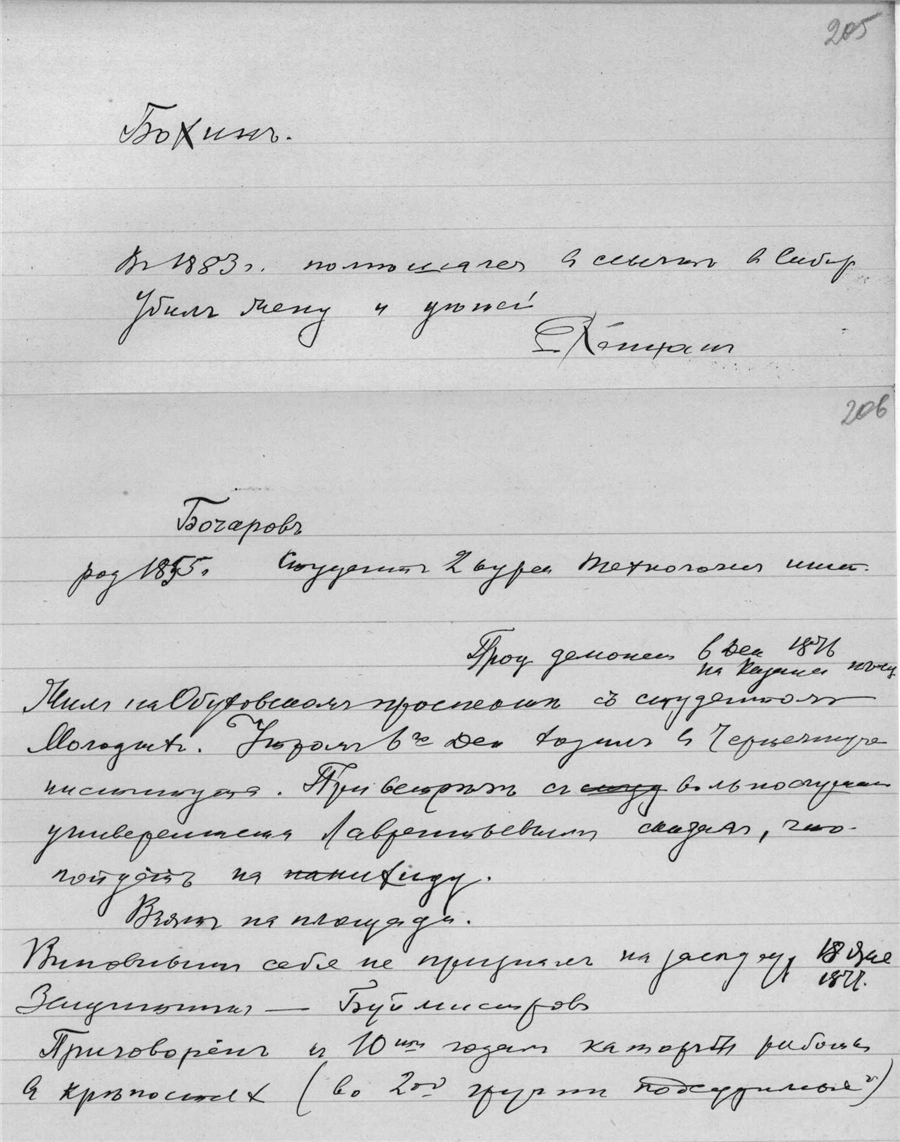 205
Бохинъ.
Въ 1883 г. въ Сибир
Убилъ жену и
206
Бочаровъ
род 1855 г. Студентъ 2 курса Технологич инст.
Проц демонст 6 Дек 1876
на Казанск площ
Жилъ на Обуховскомъ проспектѣ съ студентомъ
Утромъ 6го Дек ходилъ въ Чертежную
института. При встрѣчѣ съ студ вольнослушат
университета Лаврентьевымъ сказалъ, что
пойдетъ на панихиду.
Взятъ на площади.
Виновнымъ себя не призналъ на засѣд 18 Янв
1877.
Защитникъ — Буймистровъ
Приговоренъ къ 10 годамъ каторжн работъ
въ крѣпостяхъ (во 2ой группѣ подсудимыхъ)